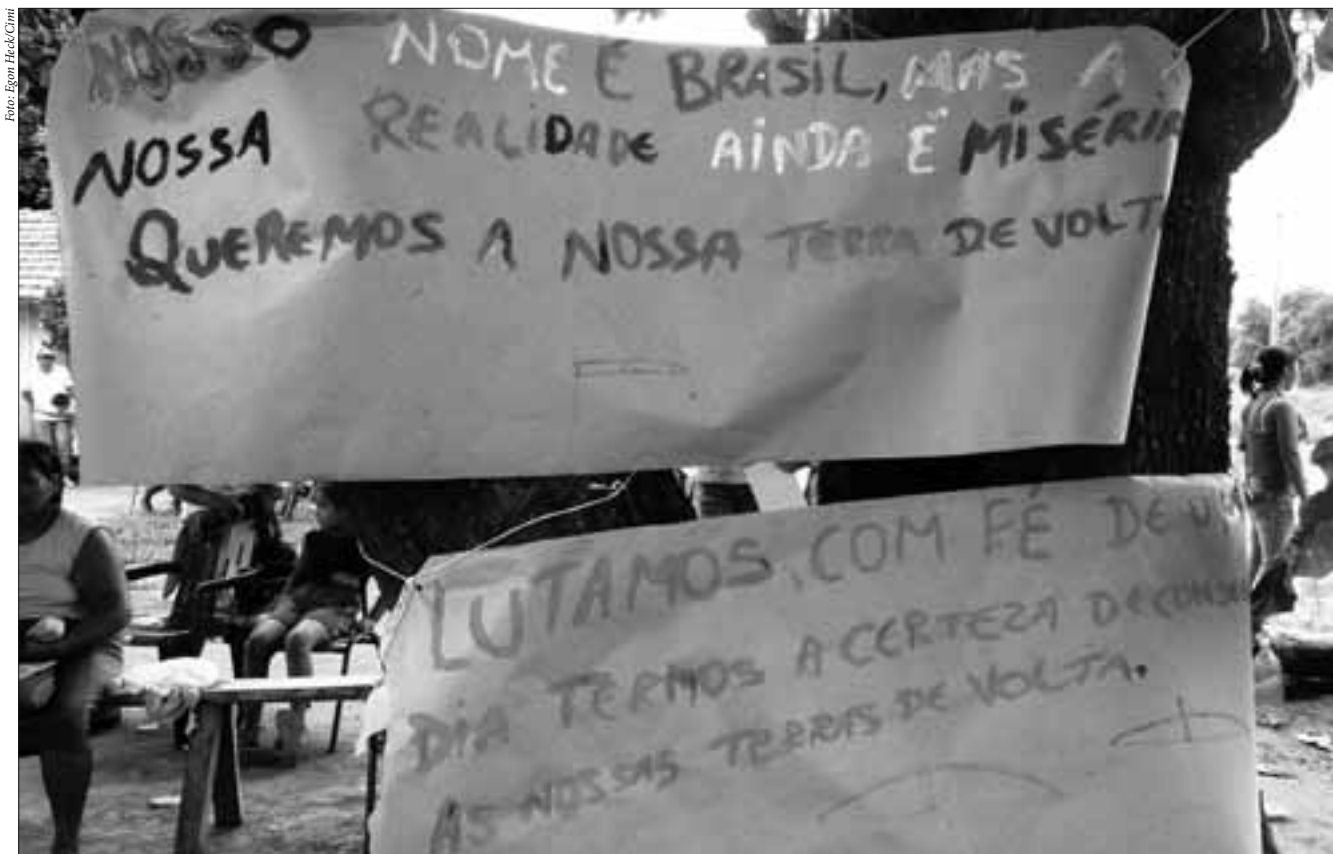 Foto: Egon Heck/Cimi
NOSSO NOME E BRASIL, MAS A
NOSSA REALIDADE AINDA É MISÉRIA
QUEREMOS A NOSSA TERRA DE VOLT
LUTAMOS, COM FÉ DE U
DIA TERMOS A CERTEZA DE CONS
AS NOSSAS TERRAS DE VOLTA.